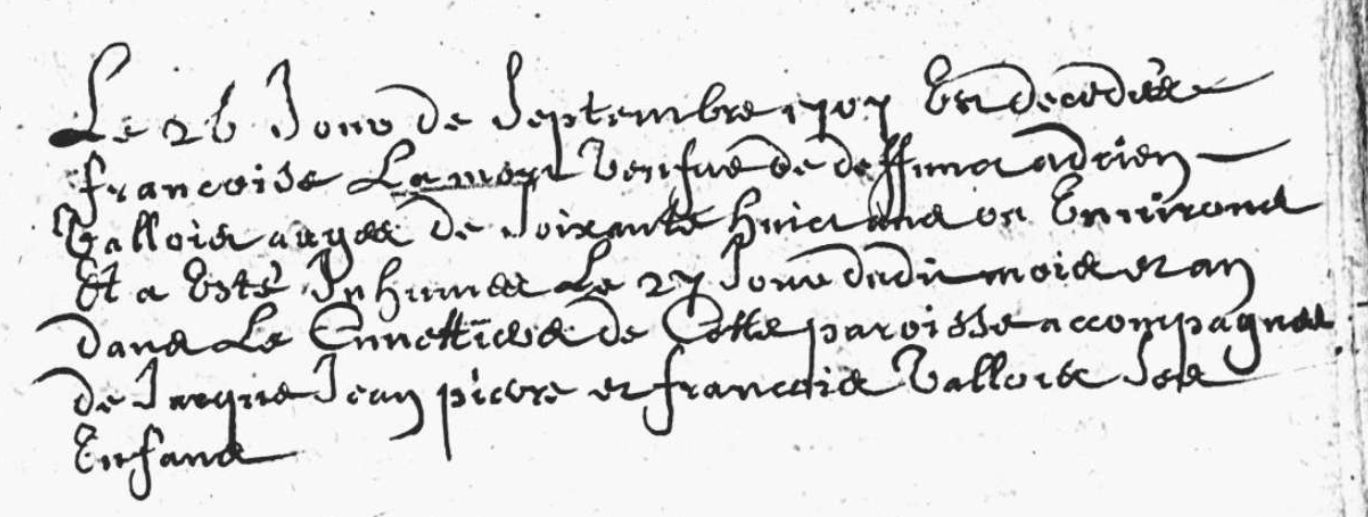 Le 26 Jour de Septembre 1707 Est decedée
françoise Lamort Venfue de deffunct adrien
Vallois aagee de soixante huict ans ou Environs
Et a Esté Inhumee Le 27 Jour dudit mois et an
dans Le Cimettiere de Cette paroisse accompagnee
de Jacque Jean pierre et francois Vallois ses
Enfans